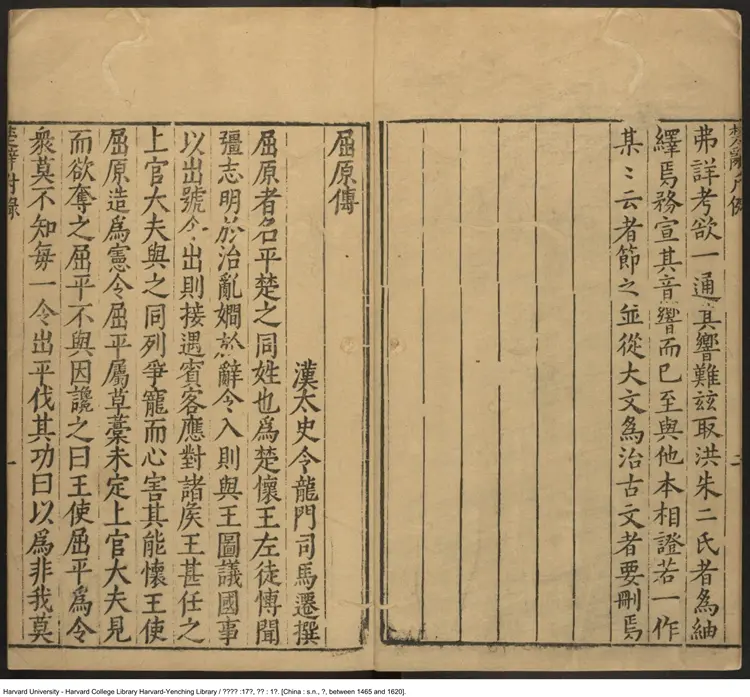 弗詳考欲一通其響難玆取洪朱二氏者爲紬
繹焉務宣其音響而已至與他本相證若一作
某〻云者節之並從大文爲治古文者要刪焉
二
屈原傳
漢太史令龍門司馬遷撰
屈原者名平楚之同姓也爲楚懷王左徒慱聞
彊志明於治亂嫺於辭令入則與王圖議國事
以出號令出則接遇賓客應對諸矦王甚任之
上官大夫與之同列爭寵而心害其能懷王使
屈原造爲憲令屈平屬草藁未定上官大夫見
而欲奪之屈平不與因讒之曰王使屈平爲令
衆莫不知每一令出平伐其功曰以爲非我莫
一
Harvard University - Harvard College Library Harvard-Yenching Library / ???? :17?, ?? : 1?. [China : s.n., ?, between 1465 and 1620].